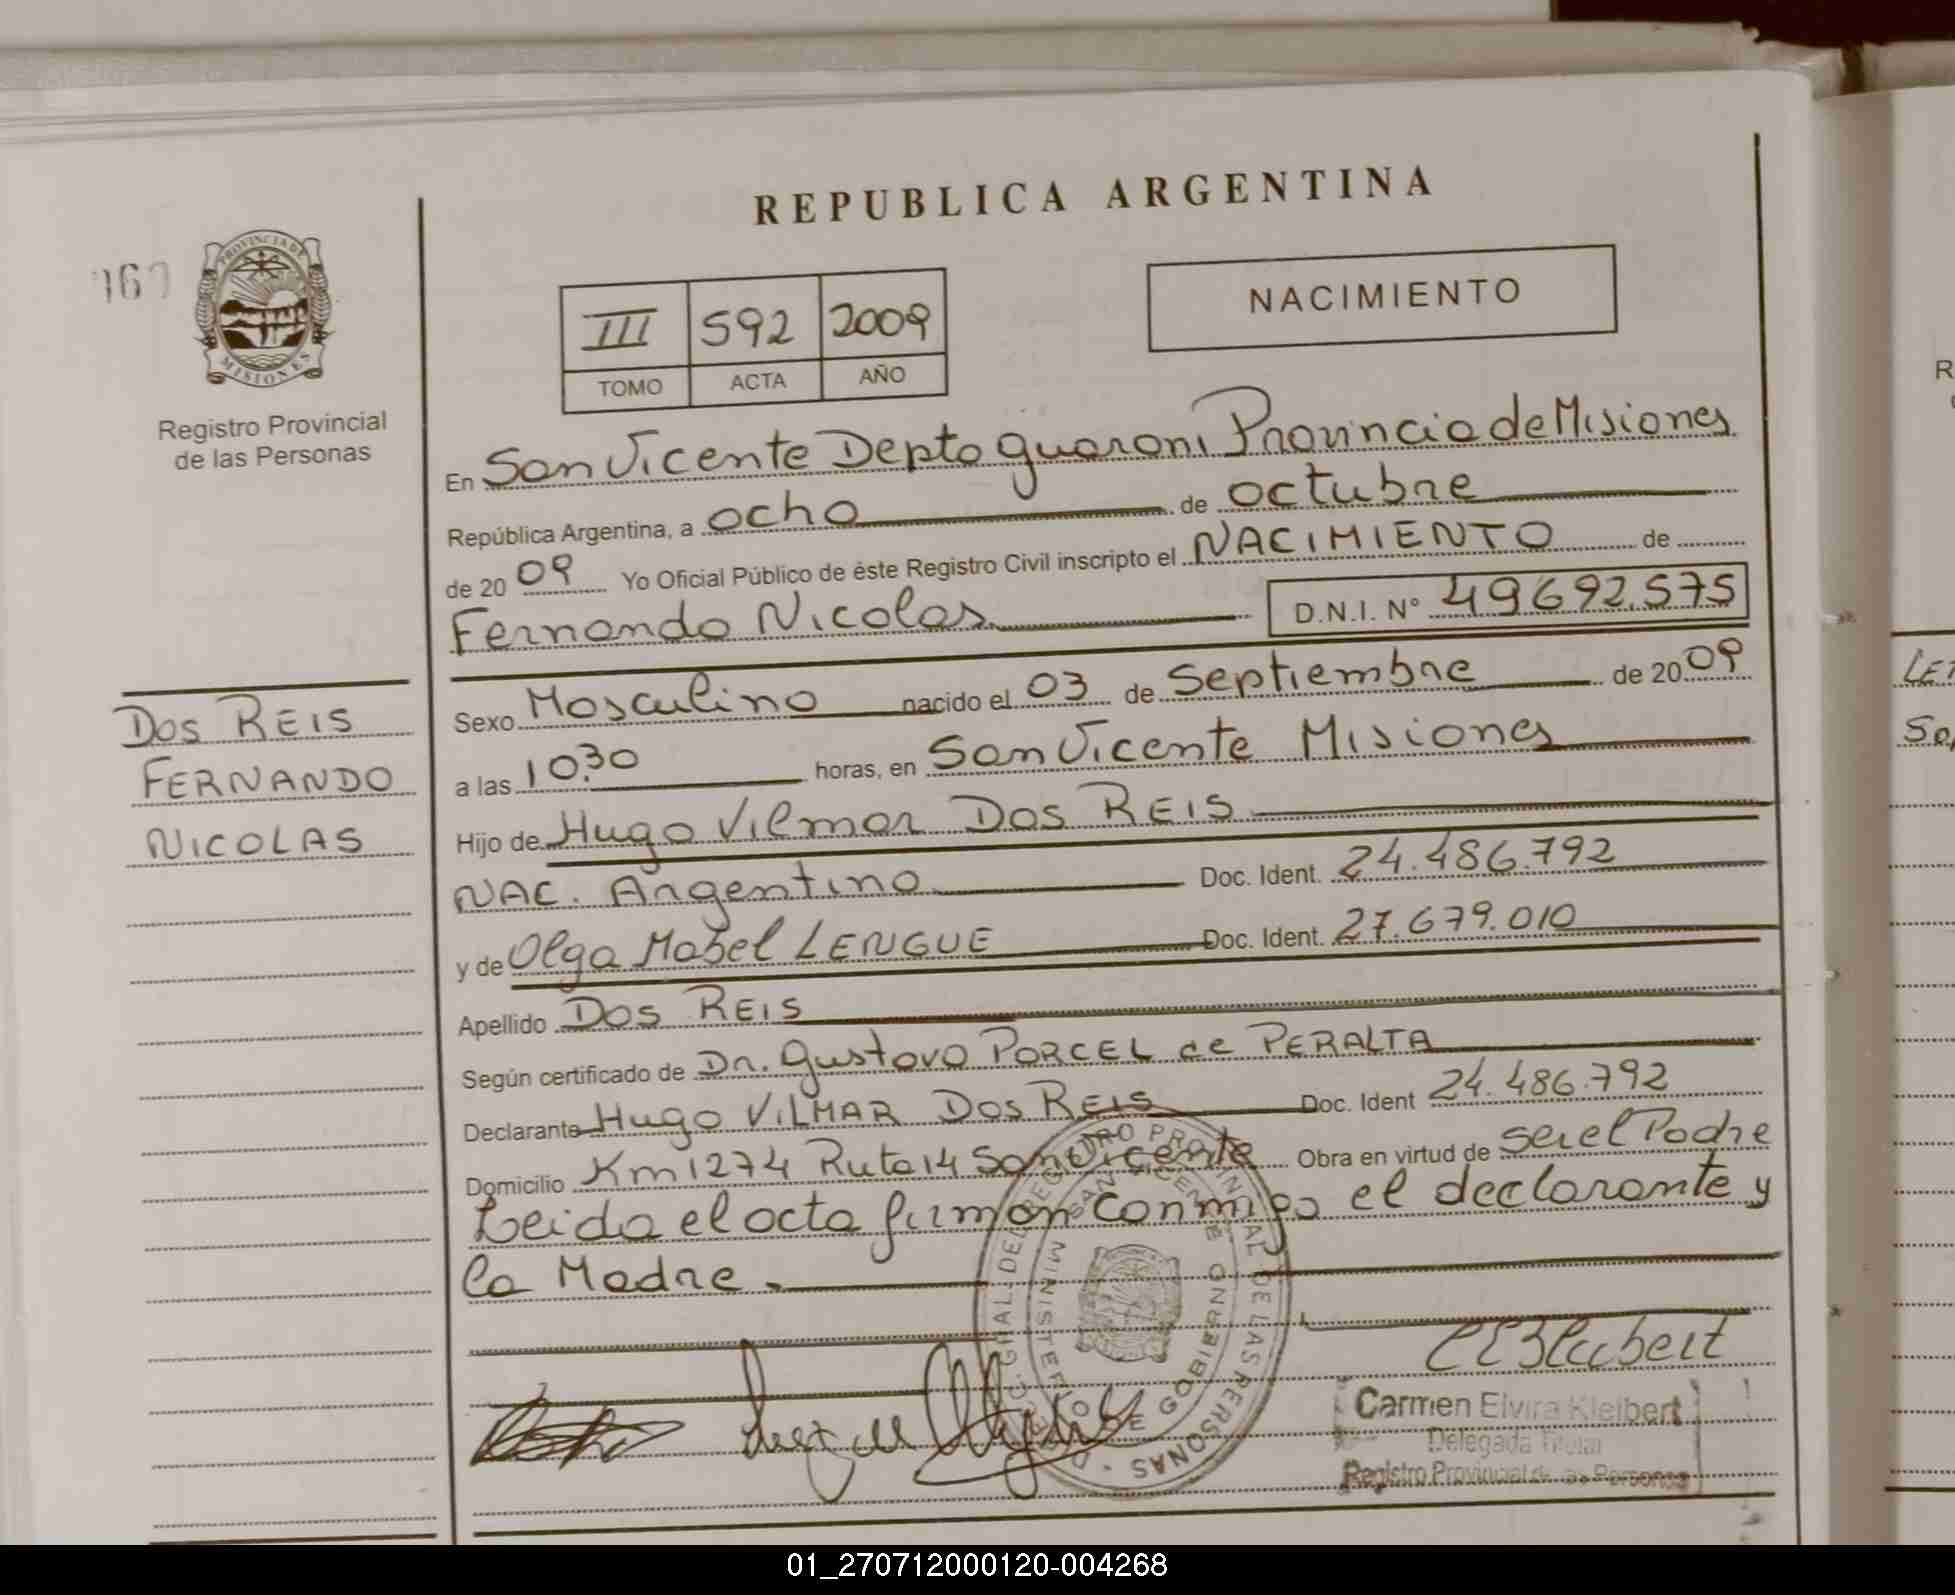 REPUBLICA ARGENTINA
PROVINCIA DE MISIONES
III 592 2009
TOMO ACTA AÑO
NACIMIENTO
Registro Provincial
de las Personas
DOS REIS
FERNANDO
NICOLAS
En San Vicente Depto guarani Provincia de Misiones
República Argentina, a ocho de octubre
de 20 09 Yo Oficial Público de éste Registro Civil inscripto el NACIMIENTO de
Fernando Nicolas D.N.I. Nº 49692.575
Sexo Masculino nacido el 03 de Septiembre de 20 09
a las 10.30 horas, en San Vicente Misiones
Hijo de Hugo Vilmar Dos REIS
NAC. Argentino Doc. Ident. 24.486.792
y de Olga Mabel LENGUE Doc. Ident. 27.679.010
Apellido Dos REIS
Según certificado de Dr. Gustavo PORCEL de PERALTA
Declarante Hugo VILMAR Dos REIS Doc. Ident 24.486.792
Domicilio Km 1274 Ruta 14 San Vicente Obra en virtud de ser el Padre
Leida el acta firman conmigo el declarante y
la Madre.
Carmen Elvira Kleibert
Delegada Titular
Registro Provincial de las Personas
01_270712000120-004268